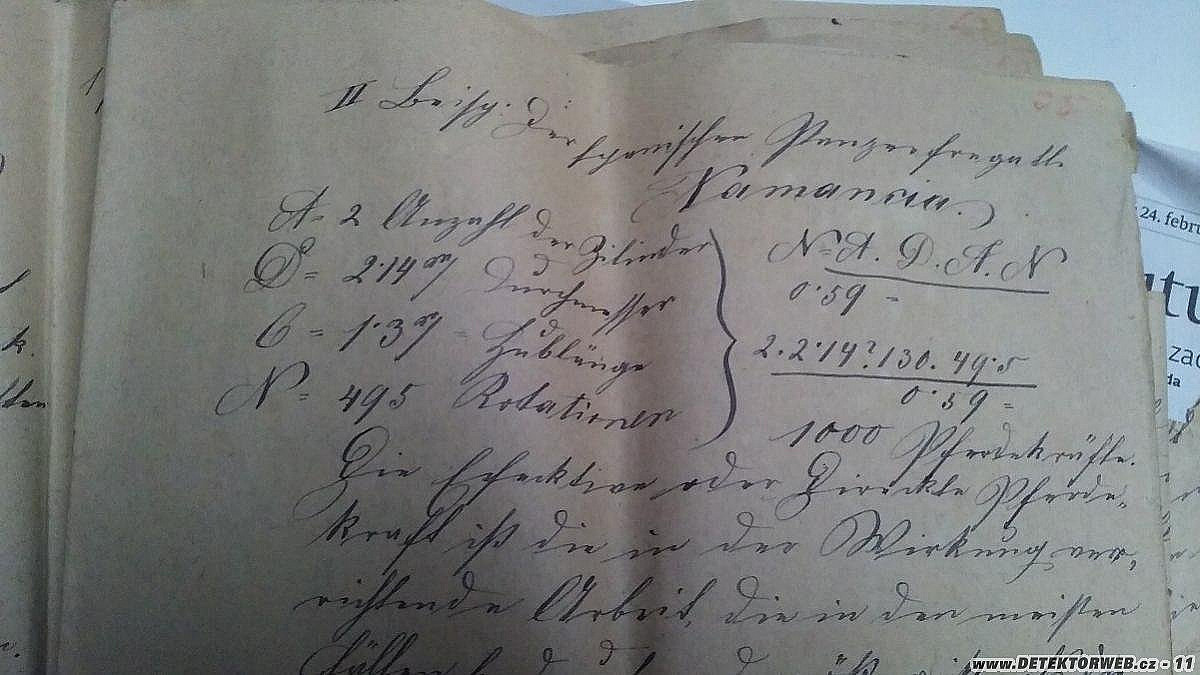 55
II Beisp: Der
spanischen Panzerfregatte
Namancia.
A = 2 Anzahl der Zilinder
D = 2·14 m/ Durchmesser
C = 1·3 m/ = Hublänge
N = 495 Rotationen
N = A. D. A. N
0·59 =
2. 2·14². 130. 49·5
0·59 =
1000 Pferdekräfte.
Die Efecktive oder Direckte Pferde-
kraft ist die in der Wirkung ver-
richtende Arbeit, die in den meisten
Fällen
24. febru
utu
zac
da
k.
www.DETEKTORWEB.cz - 11